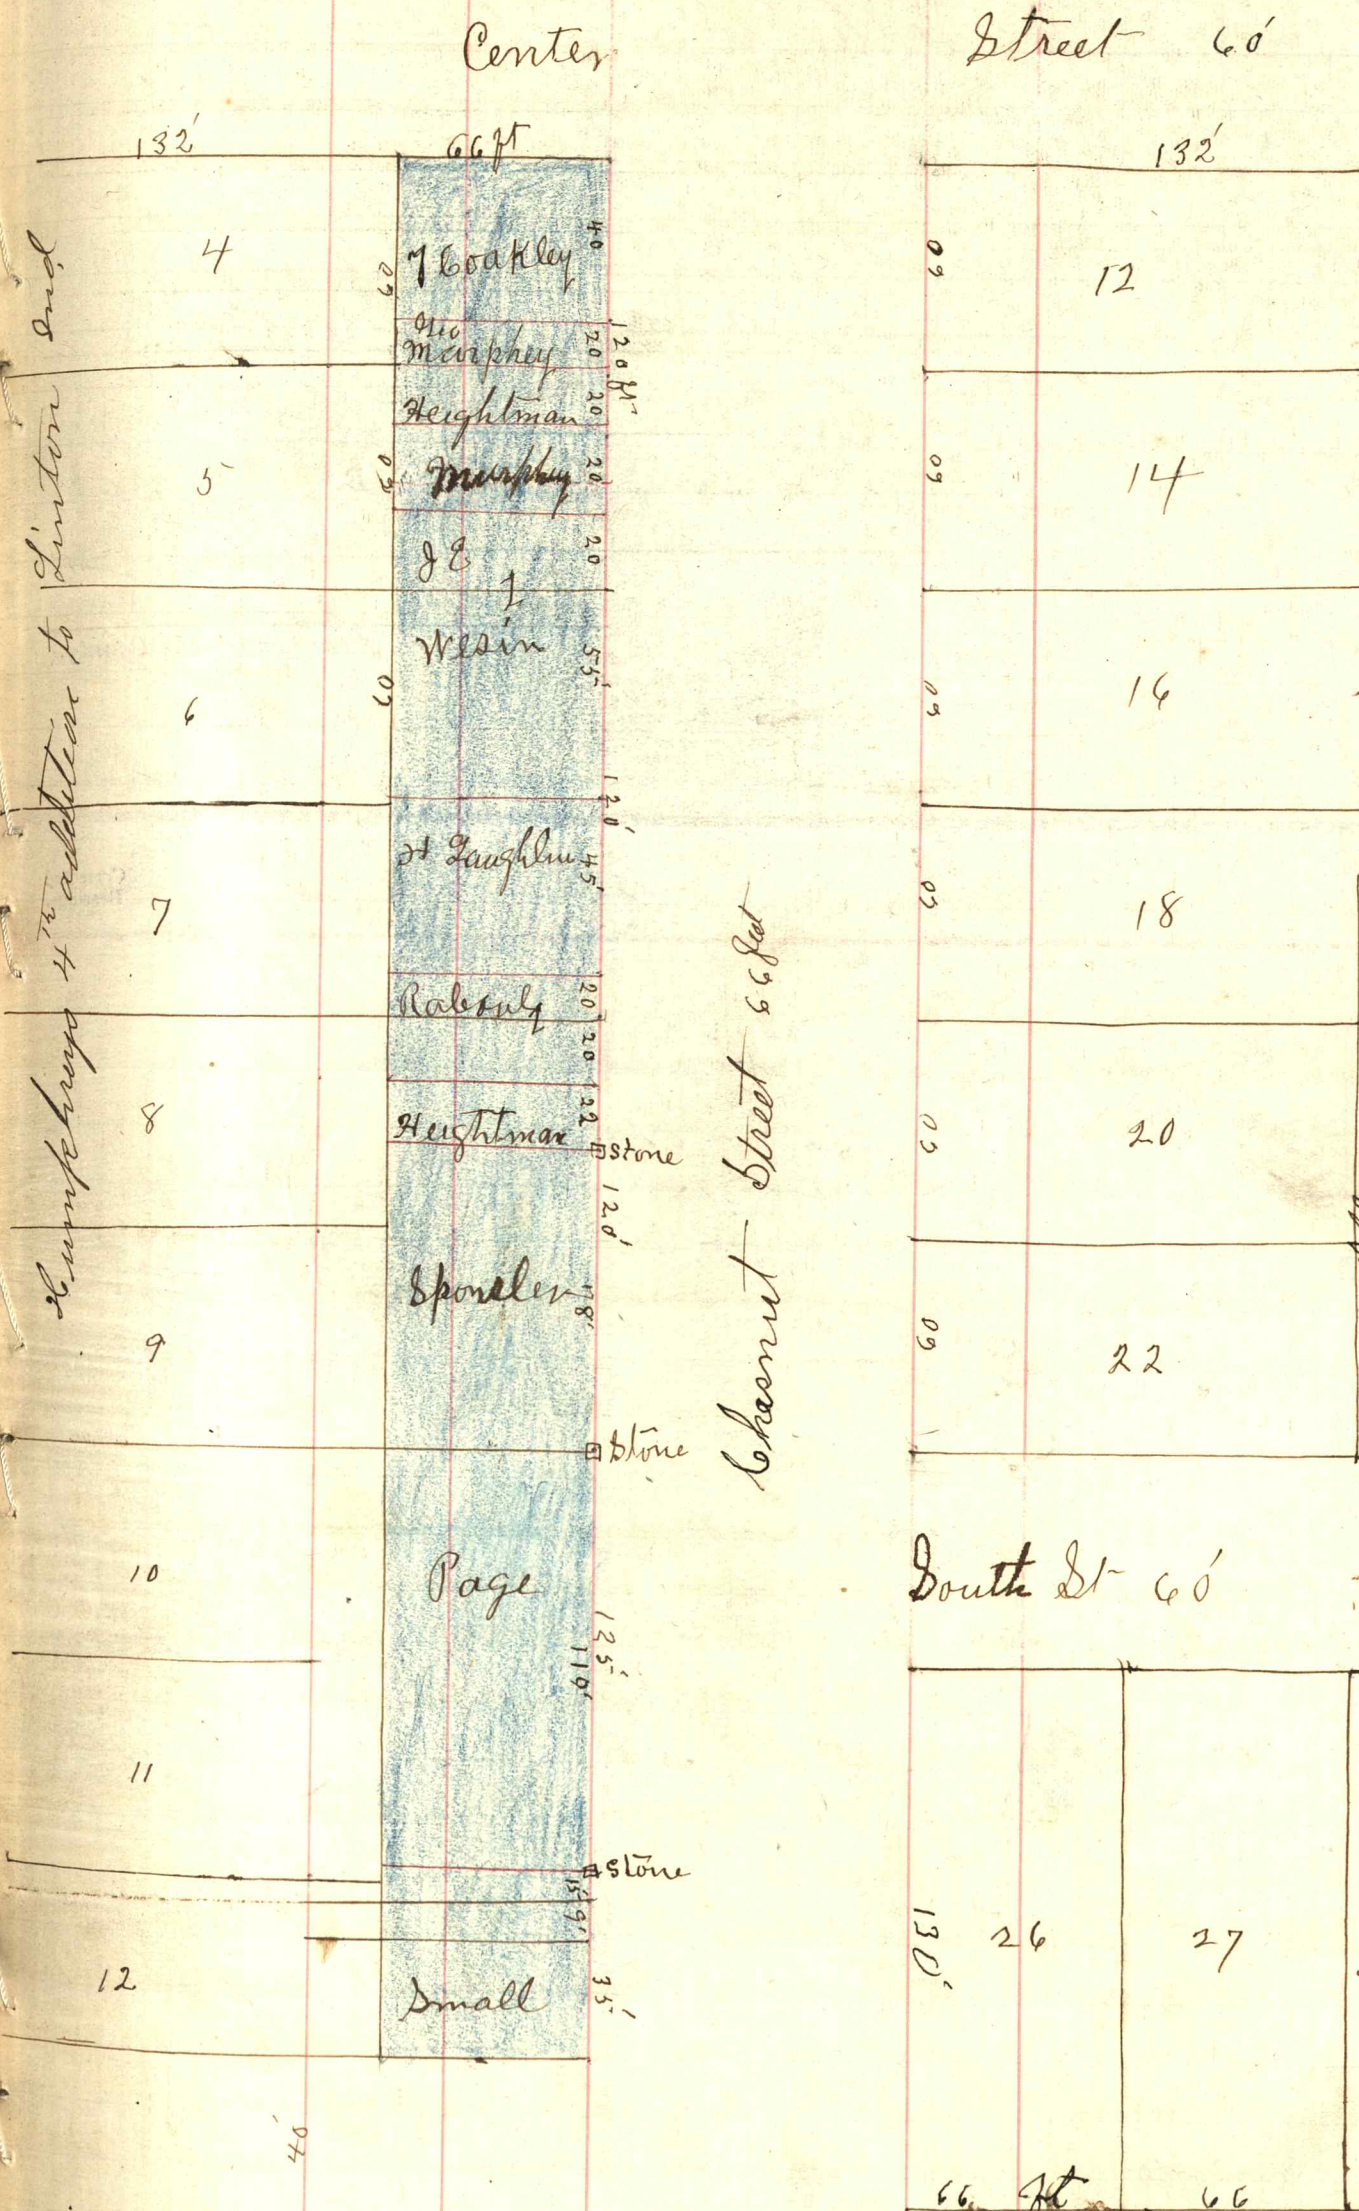 Center Street 60'
132' 66 ft 132'
Humphreys 4th addition to Linton Ind
4
5
6
7
8
9
10
11
12
60
60
60
Coakley 40
Geo
Murphey 20
120 ft
Heightman 20
Murphey 20
J E 20
1
Wesin 55'
120'
H Laughlin 45'
20
20
Heightman 22
Stone
120'
Sponsler 78'
Stone
Page
125'
110'
Stone
15'
9'
Small 35'
40'
Chasnut Street 66 feet
60 12
60 14
60 16
60 18
60 20
60 22
South St 60'
130' 26 27
66 ft 66